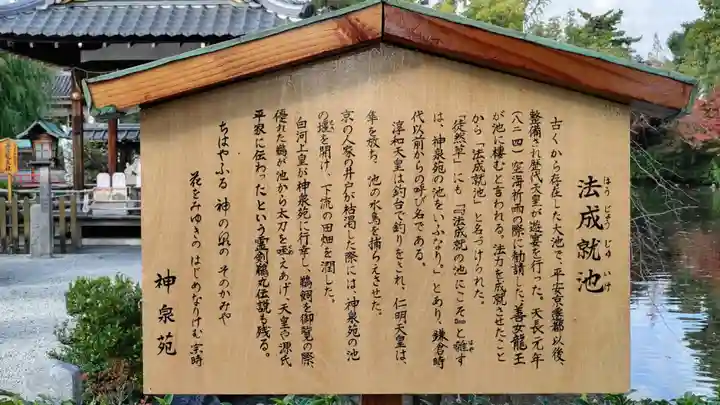 法成就池
ほう じょう じゅ いけ
古くから存在した大池で、平安京遷都以後、
整備され歴代天皇が遊宴を行った。天長元年
(八二四)空海祈雨の際に勧請した、善女龍王
が池に棲むと言われる。法力を成就させたこと
から「法成就池」と名づけられた。
「徒然草」にも『「法成就の池にこそ」と囃す
はや
は、神泉苑の池をいふなり。』とあり、鎌倉時
代以前からの呼び名である。
淳和天皇は釣台で釣りをされ、仁明天皇は、
隼を放ち、池の水鳥を捕らえさせた。
京の人家の井戸が枯渇した際には、神泉苑の池
の堰を開け、下流の田畑を潤した。
白河上皇が神泉苑に行幸し、鵜飼を御覧の際、
優れた鵜が池から太刀を咥えあげ、天皇や源氏
平家に伝わったという霊剣鵜丸伝説も残る。
ちはやふる 神の泉の そのかみや
花をみゆきの はじめなりけむ 京時
神泉苑